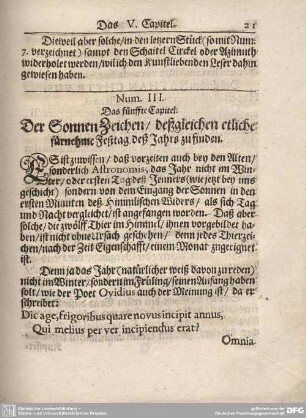 Das V. Capitel. 21
Dieweil aber solche/ in den letzern Stück (so mit Num:
7. verzeichnet) sampt den Schaitel Circkel oder Azimuth
widerholet werden/ wil ich den Kunstliebenden Leser dahin
gewiesen haben.
Num. III.
Das fünffte Capitel.
Der Sonnen Zeichen/ deßgleichen etliche
fürnehme Festtag deß Jahrs zu finden.
ES ist zuwissen/ daß vorzeiten auch bey den Alten/
sonderlich Astronomis, das Jahr nicht im Win-
ter/ oder ersten Tag deß Jenners (wie jetzt bey uns
geschicht) sondern von dem Eingang der Sonnen in den
ersten Minuten deß Himmlischen Widers/ als sich Tag
und Nacht vergleichet/ ist angefangen worden. Daß aber
solche/ die zwölff Thier im Himmel/ ihnen vorgebildet ha-
ben/ ist nicht ohne Ursach geschehen/ denn jedes Thierzei-
chen/ nach der Zeit Eigenschafft/ einem Monat zugeeignet
ist.
Denn ja das Jahr (natürlicher weiß davon zu reden)
nicht im Winter/ sondern im Früling/ seinen Anfang haben
solt/ wie der Poet Ovidius auch der Meinung ist/ da er
schreibet:
Dic age, frigoribus quare novus incipit annus,
Qui melius per ver incipiendus erat?
Omnia